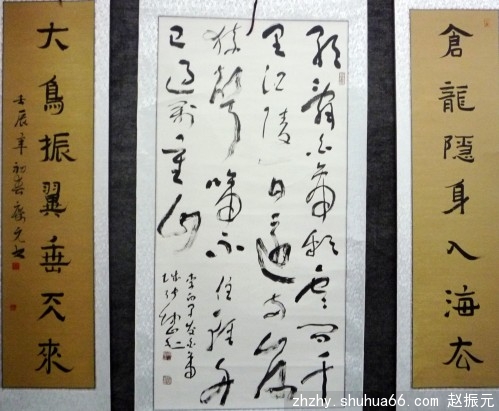 倉龍隱身入海厺
朝辭白帝彩雲間千
里江陵一日還兩岸
猿聲啼不住輕舟
已過萬重山
李白早發白帝
城
大鳥振翼垂天來
壬辰年初
zhzhy.shuhua66.com 赵振元